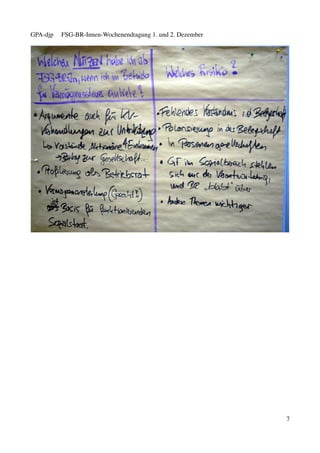 GPA-djp FSG-BR-Innen-Wochenendtagung 1. und 2. Dezember
Welchen NUTZEN habe ich als
FSG-BRIn, wenn ich im Betrieb
für Vermögenssteuer eintrete?
• Argumente auch für KV-
Verhandlungen zur Unterstützung
Vorstände, Aktionäre
→ Beitrag zur Gesellschaft.
• Profilierung als Betriebsrat
• Vermögensverteilung (Gerecht!)
ist Basis für funktionierenden
Sozialstaat.
Welches Risiko?
• Fehlendes Verständnis i.d. Belegschaft
• Polarisierung in der Belegschaft.
• In Personengesellschaften
• GF im Sozialbereich stehlen
sich aus der Verantwortung,
und BR "bleibt" über
• Andere Themen wichtiger
7